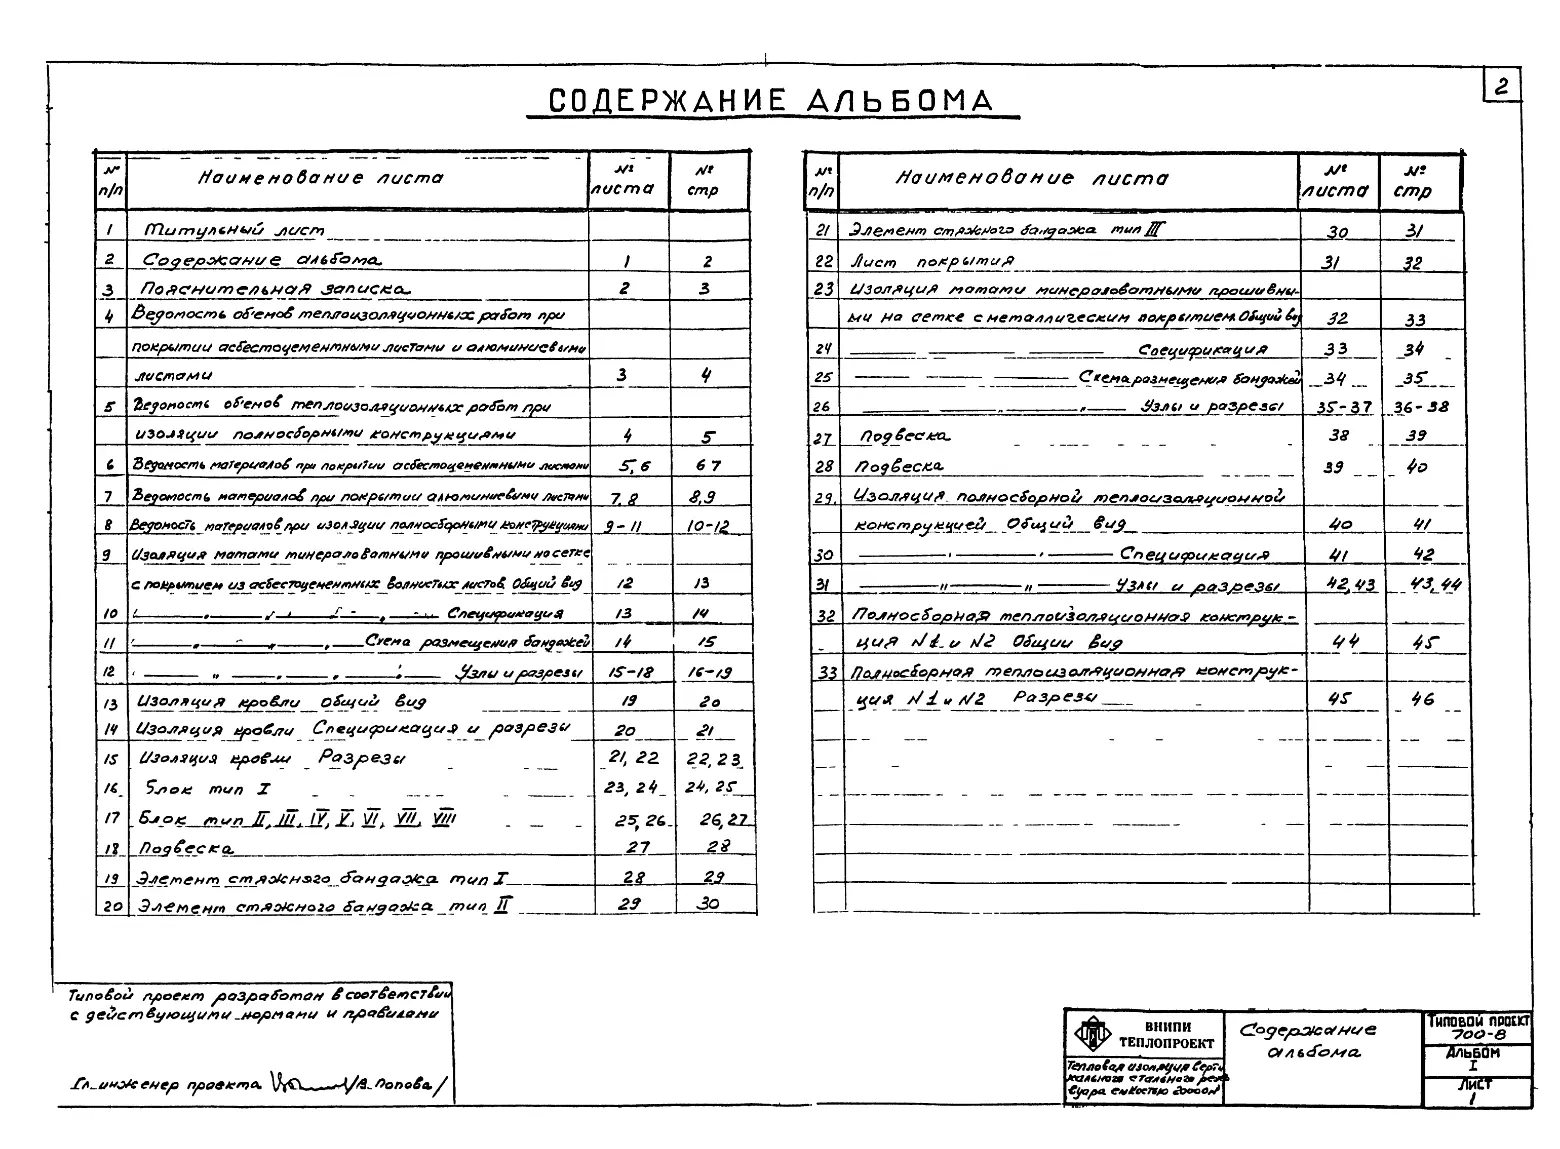 2
СОДЕРЖАНИЕ АЛЬБОМА
№ п/п Наименование листа № листа № стр
1 Титульный лист
2 Содержание альбома 1 2
3 Пояснительная записка 2 3
4 Ведомость об'емов теплоизоляционных работ при
покрытии асбестоцементными листами и алюминиевыми
листами 3 4
5 Ведомость об'емов теплоизоляционных работ при
изоляции полносборными конструкциями 4 5
6 Ведомость материалов при покрытии асбестоцементными листами 5, 6 6 7
7 Ведомость материалов при покрытии алюминиевыми листами 7, 8 8,9
8 Ведомость материалов при изоляции полносборными конструкциями 9-11 10-12
9 Изоляция матами минераловатными прошивными на сетке
с покрытием из асбестоцементных волнистых листов. Общий вид 12 13
10 — „ — „ — Спецификация 13 14
11 — „ — „ — Схема размещения бандажей 14 15
12 — „ — „ — Узлы и разрезы 15-18 16-19
13 Изоляция кровли Общий вид 19 20
14 Изоляция кровли Спецификация и разрезы 20 21
15 Изоляция кровли Разрезы 21, 22 22, 23
16 Блок тип I 23, 24 24, 25
17 Блок тип II, III, IV, V, VI, VII, VIII 25, 26 26, 27
18 Подвеска 27 28
19 Элемент стяжного бандажа тип I 28 29
20 Элемент стяжного бандажа тип II 29 30
№ п/п Наименование листа № листа № стр
21 Элемент стяжного бандажа тип III 30 31
22 Лист покрытия 31 32
23 Изоляция матами минераловатными прошивны-
ми на сетке с металлическим покрытием. Общий вид 32 33
24 — — Спецификация 33 34
25 — — Схема размещения бандажей 34 35
26 — „ — Узлы и разрезы 35-37 36-38
27 Подвеска 38 39
28 Подвеска 39 40
29. Изоляция полносборной теплоизоляционной
конструкцией Общий вид 40 41
30 — „ — „ — Спецификация 41 42
31 — „ — „ — Узлы и разрезы 42, 43 43, 44
32 Полносборная теплоизоляционная конструк-
ция N1 и N2 Общий вид 44 45
33 Полносборная теплоизоляционная конструк-
ция N1 и N2 Разрезы 45 46
Типовой проект разработан в соответствии
с действующими нормами и правилами
Гл. инженер проекта /В. Попова/
ВНИПИ
ТЕПЛОПРОЕКТ
Тепловая изоляция верти
кального стального резер
вуара емкостью 20000м³
Содержание
альбома
Типовой проект
700-8
Альбом
I
Лист
1